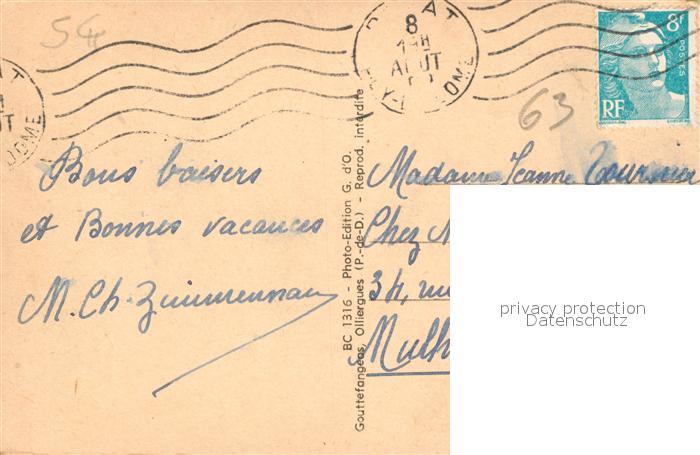 54
8
19H
AOUT
DOME
8F
POSTES
RF
63
Bons baisers
et Bonnes vacances
M. Ch. Zimmermann
BC 1316 - Photo-Edition G. d'O.
Gouttefangeas, Olliergues (P.-de-D.) - Reprod. interdite
Madame Jeanne Tournier
Chez
34, rue
Mulh
privacy protection
Datenschutz